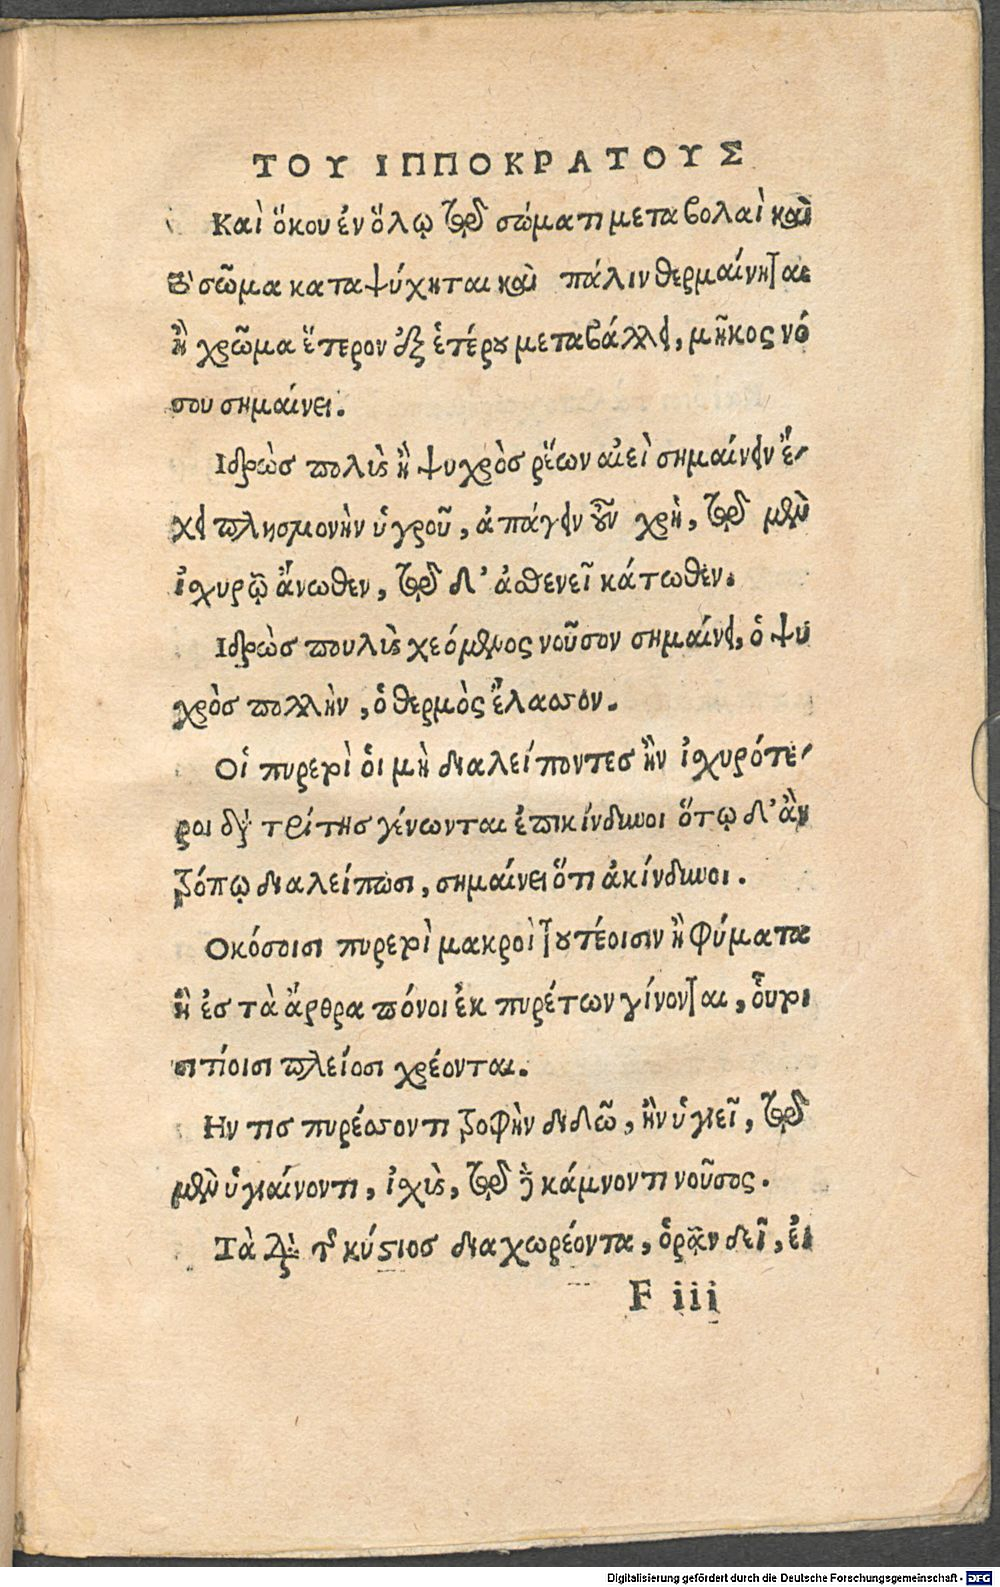 ΤΟΥ ΙΠΠΟΚΡΑΤΟΥΣ
Καὶ ὅκου ἐν ὅλῳ τῷ σώματι μεταβολαὶ καὶ
τὸ σῶμα καταψύχηται καὶ πάλιν θερμαίνηται
ἢ χρῶμα ἕτερον ἐξ ἑτέρου μεταβάλλει, μῆκος νό
σου σημαίνει.
Ιδρὼς πολὺς ἢ ψυχρὸς ῥέων αἰεὶ σημαίνειν ἔ-
χει πλησμονὴν ὑγροῦ, ἀπάγειν οὖν χρὴ, τῷ μὲν
ἰσχυρῷ ἄνωθεν, τῷ δ' ἀσθενεῖ κάτωθεν.
Ιδρὼς πουλὺς χεόμενος νοῦσον σημαίνει, ὁ ψυ
χρὸς πολλὴν, ὁ θερμὸς ἔλασσον.
Οἱ πυρετοὶ ὁι μὴ διαλείποντες ἢν ἰσχυρότε-
ροι διὰ τρίτης γένωνται ἐπικίνδυνοι ὅτῳ δ' ἂν
τρόπῳ διαλείπωσι, σημαίνει ὅτι ἀκίνδυνοι.
Οκόσοισι πυρετοὶ μακροὶ τουτέοισιν ἢ φύματα
ἢ ἐς τὰ ἄρθρα πόνοι ἐκ πυρέτων γίνονται, ὅυτοι
σιτίοισι πλείοσι χρέονται.
Ην τις πυρέσσοντι τροφὴν διδῶ, ἢν ὑγιεῖ, τῷ
μὲν ὑγιαίνοντι, ἰσχὺς, τῷ δὲ κάμνοντι νοῦσος.
Τὰ διὰ τῆς κύστιος διαχωρέοντα, ὁρᾷν δεῖ, ἐι
F iii
Digitalisierung gefördert durch die Deutsche Forschungsgemeinschaft - DFG